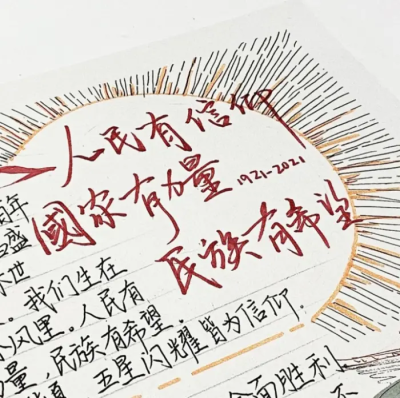 人民有信仰
國家有力量 1921-2021
民族有希望
百年
盛世
我们生在
风里。人民有
量,民族有希望.
五星闪耀皆为信仰.
全面胜利